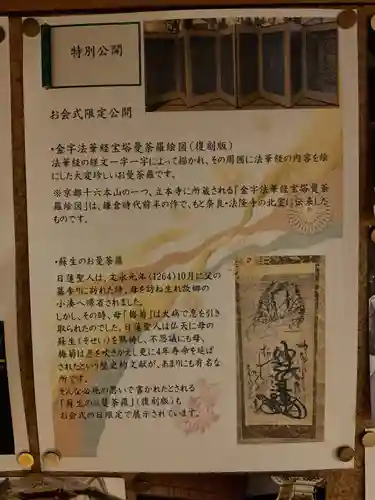 特別公開
お会式限定公開
・金字法華経宝塔曼荼羅絵図(復刻版)
法華経の経文一字一字によって描かれ、その周囲に法華経の内容を絵
にした大変珍しいお曼荼羅です。
※京都十六本山の一つ、立本寺に所蔵される「金字法華経宝塔曼荼
羅絵図」は、鎌倉時代前半の作で、もと奈良・法隆寺の北室に伝来した
ものです。
・蘇生のお曼荼羅
日蓮聖人は、文永元年(1264)10月に父の
墓参りに訪れた時、母を訪ね生れ故郷の
小湊へ帰省されました。
しかし、その時、母「梅菊」は大病で息を引き
取られたのでした。日蓮聖人は仏天に母の
蘇生(そせい)を熱祷し、不思議にも母、
梅菊は息を吹きかえし更に4年寿命を延ば
されたという歴史的文献が、あまりにも有名な
所です。
そんな必死の思いで書かれたとされる
「蘇生のお曼荼羅」(復刻版)も
お会式の日限定で展示されています。